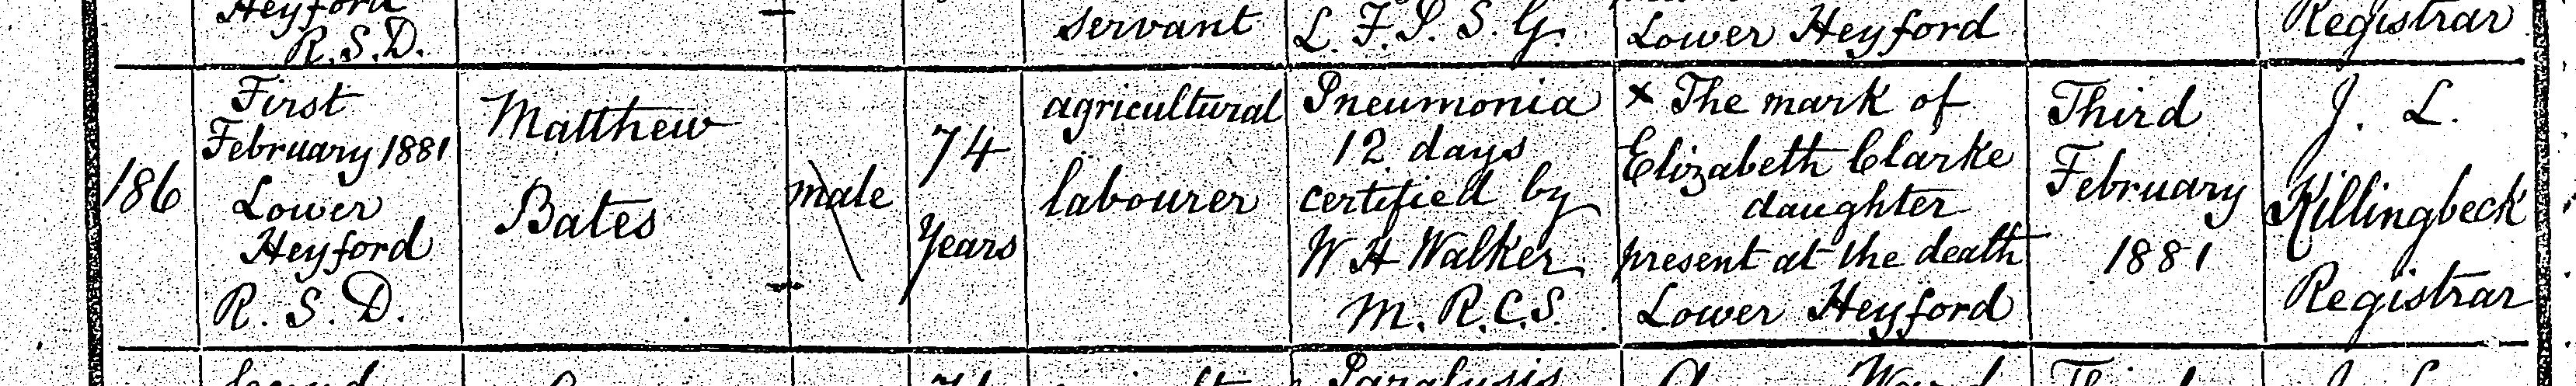 Heyford
R.S.D.
servant
L.F.P.S.G.
Lower Heyford
Registrar
186
First
February 1881
Lower
Heyford
R.S.D.
Matthew
Bates
male
74
Years
agricultural
labourer
Pneumonia
12 days
certified by
W H Walker
M.R.C.S.
x The mark of
Elizabeth Clarke
daughter
present at the death
Lower Heyford
Third
February
1881
J. L.
Killingbeck
Registrar
Second
Paralysis
Ward
Third
J. L.